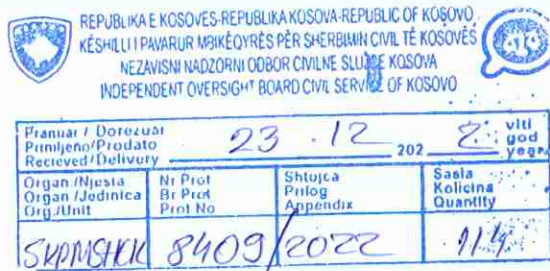 REPUBLIKA E KOSOVES-REPUBLIKA KOSOVA-REPUBLIC OF KOSOVO
KËSHILLI I PAVARUR MBIKËQYRËS PËR SHERBIMIN CIVIL TË KOSOVËS
NEZAVISNI NADZORNI ODBOR CIVILNE SLUŽBE KOSOVA
INDEPENDENT OVERSIGHT BOARD CIVIL SERVICE OF KOSOVO
Pranuar / Dorezuar
Primljeno/Prodato
Recieved/Delivery 23.12 202 2 viti god year
Organ/Njesia
Organ/Jedinica
Org./Unit
Nr Prot
Br Prot
Prot No
Shtojca
Prilog
Appendix
Sasia
Kolicina
Quantity
8409/2022